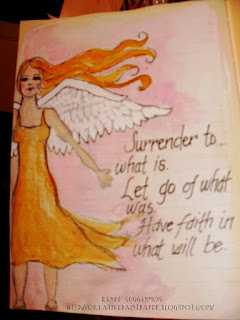 Surrender to
what is.
Let go of what
was.
Have faith in
what will be.